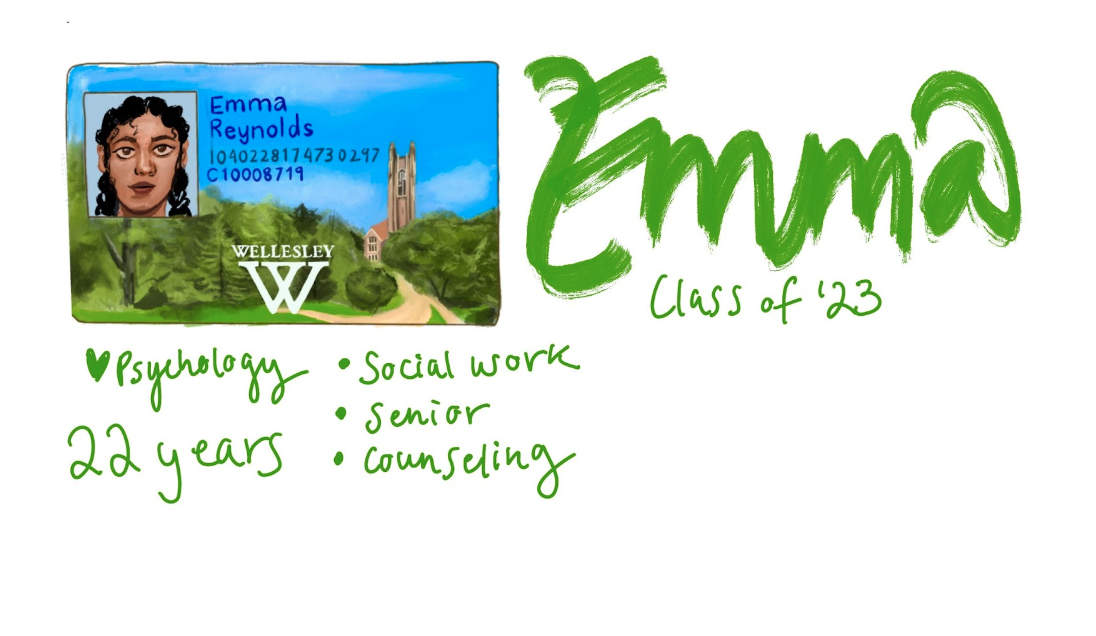 Emma
Reynolds
1040228174730297
C10008719
WELLESLEY
W
Emma
Class of '23
♥Psychology
22 years
• Social work
• Senior
• Counseling